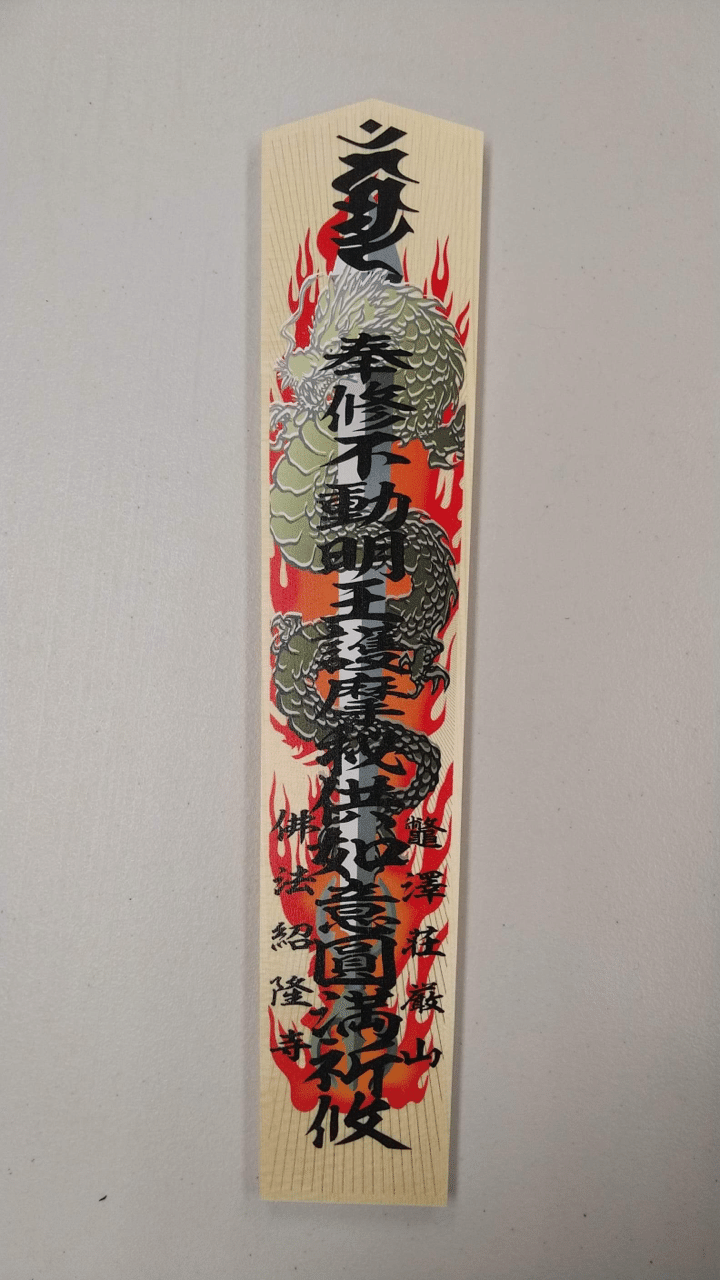 奉修不動明王護摩秘供如意圓満祈攸
鼈澤荘厳山
佛法紹隆寺